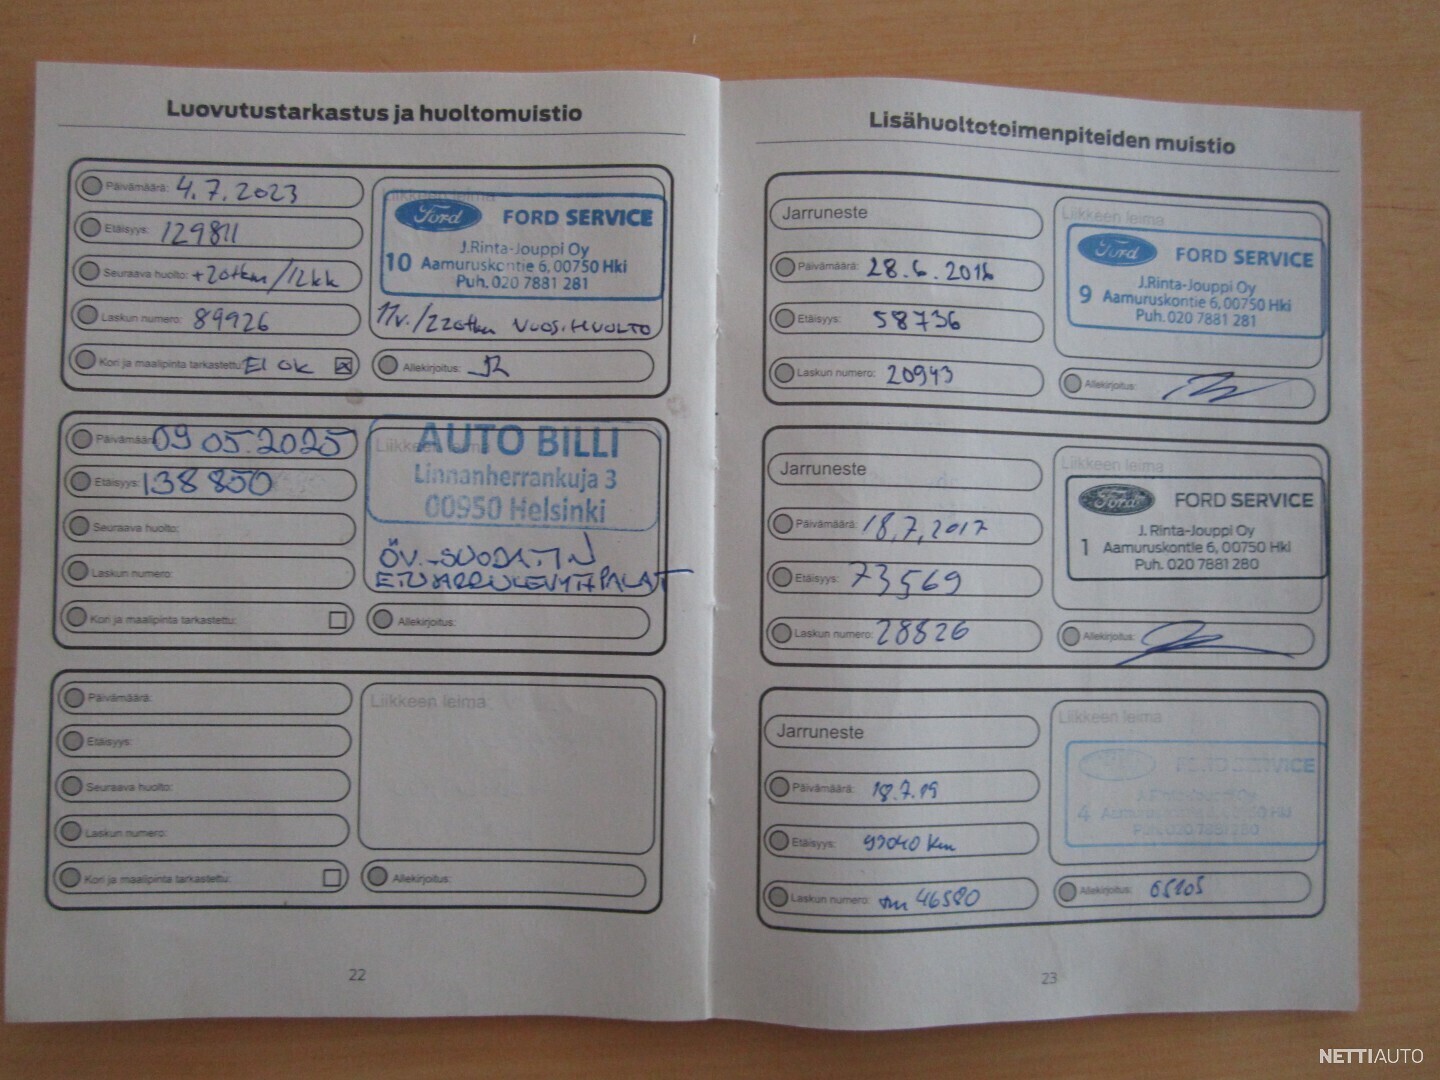 Luovutustarkastus ja huoltomuistio
Päivämäärä: 4.7.2023
Etäisyys: 129811
Seuraava huolto: +20tkm/12kk
Laskun numero: 89926
Kori ja maalipinta tarkastettu: EI OK
Liikkeen leima
Ford FORD SERVICE
J.Rinta-Jouppi Oy
10 Aamuruskontie 6, 00750 Hki
Puh. 020 7881 281
11v./220tkm VUOSIHUOLTO
Allekirjoitus:
Päivämäärä: 09 05.2025
Etäisyys: 138 850
Seuraava huolto:
Laskun numero:
Kori ja maalipinta tarkastettu:
Liikkeen leima
AUTO BILLI
Linnanherrankuja 3
00950 Helsinki
ÖV.-SUODATIN
ETUJARRULEVYT+PALAT
Allekirjoitus:
Päivämäärä:
Etäisyys:
Seuraava huolto:
Laskun numero:
Kori ja maalipinta tarkastettu:
Liikkeen leima
Allekirjoitus:
22
Lisähuoltotoimenpiteiden muistio
Jarruneste
Päivämäärä: 28.6.2016
Etäisyys: 58736
Laskun numero: 20943
Liikkeen leima
Ford FORD SERVICE
J.Rinta-Jouppi Oy
9 Aamuruskontie 6, 00750 Hki
Puh. 020 7881 281
Allekirjoitus:
Jarruneste
Päivämäärä: 18.7.2017
Etäisyys: 73569
Laskun numero: 28826
Liikkeen leima
Ford FORD SERVICE
J. Rinta-Jouppi Oy
1 Aamuruskontie 6, 00750 Hki
Puh. 020 7881 280
Allekirjoitus:
Jarruneste
Päivämäärä: 18.7.19
Etäisyys: 99040 km
Laskun numero: 46580
Liikkeen leima
FORD SERVICE
J.Rinta-Jouppi Oy
4 Aamuruskontie 6, 00750 Hki
Puh. 020 7881 280
Allekirjoitus: 65105
23
NETTIAUTO